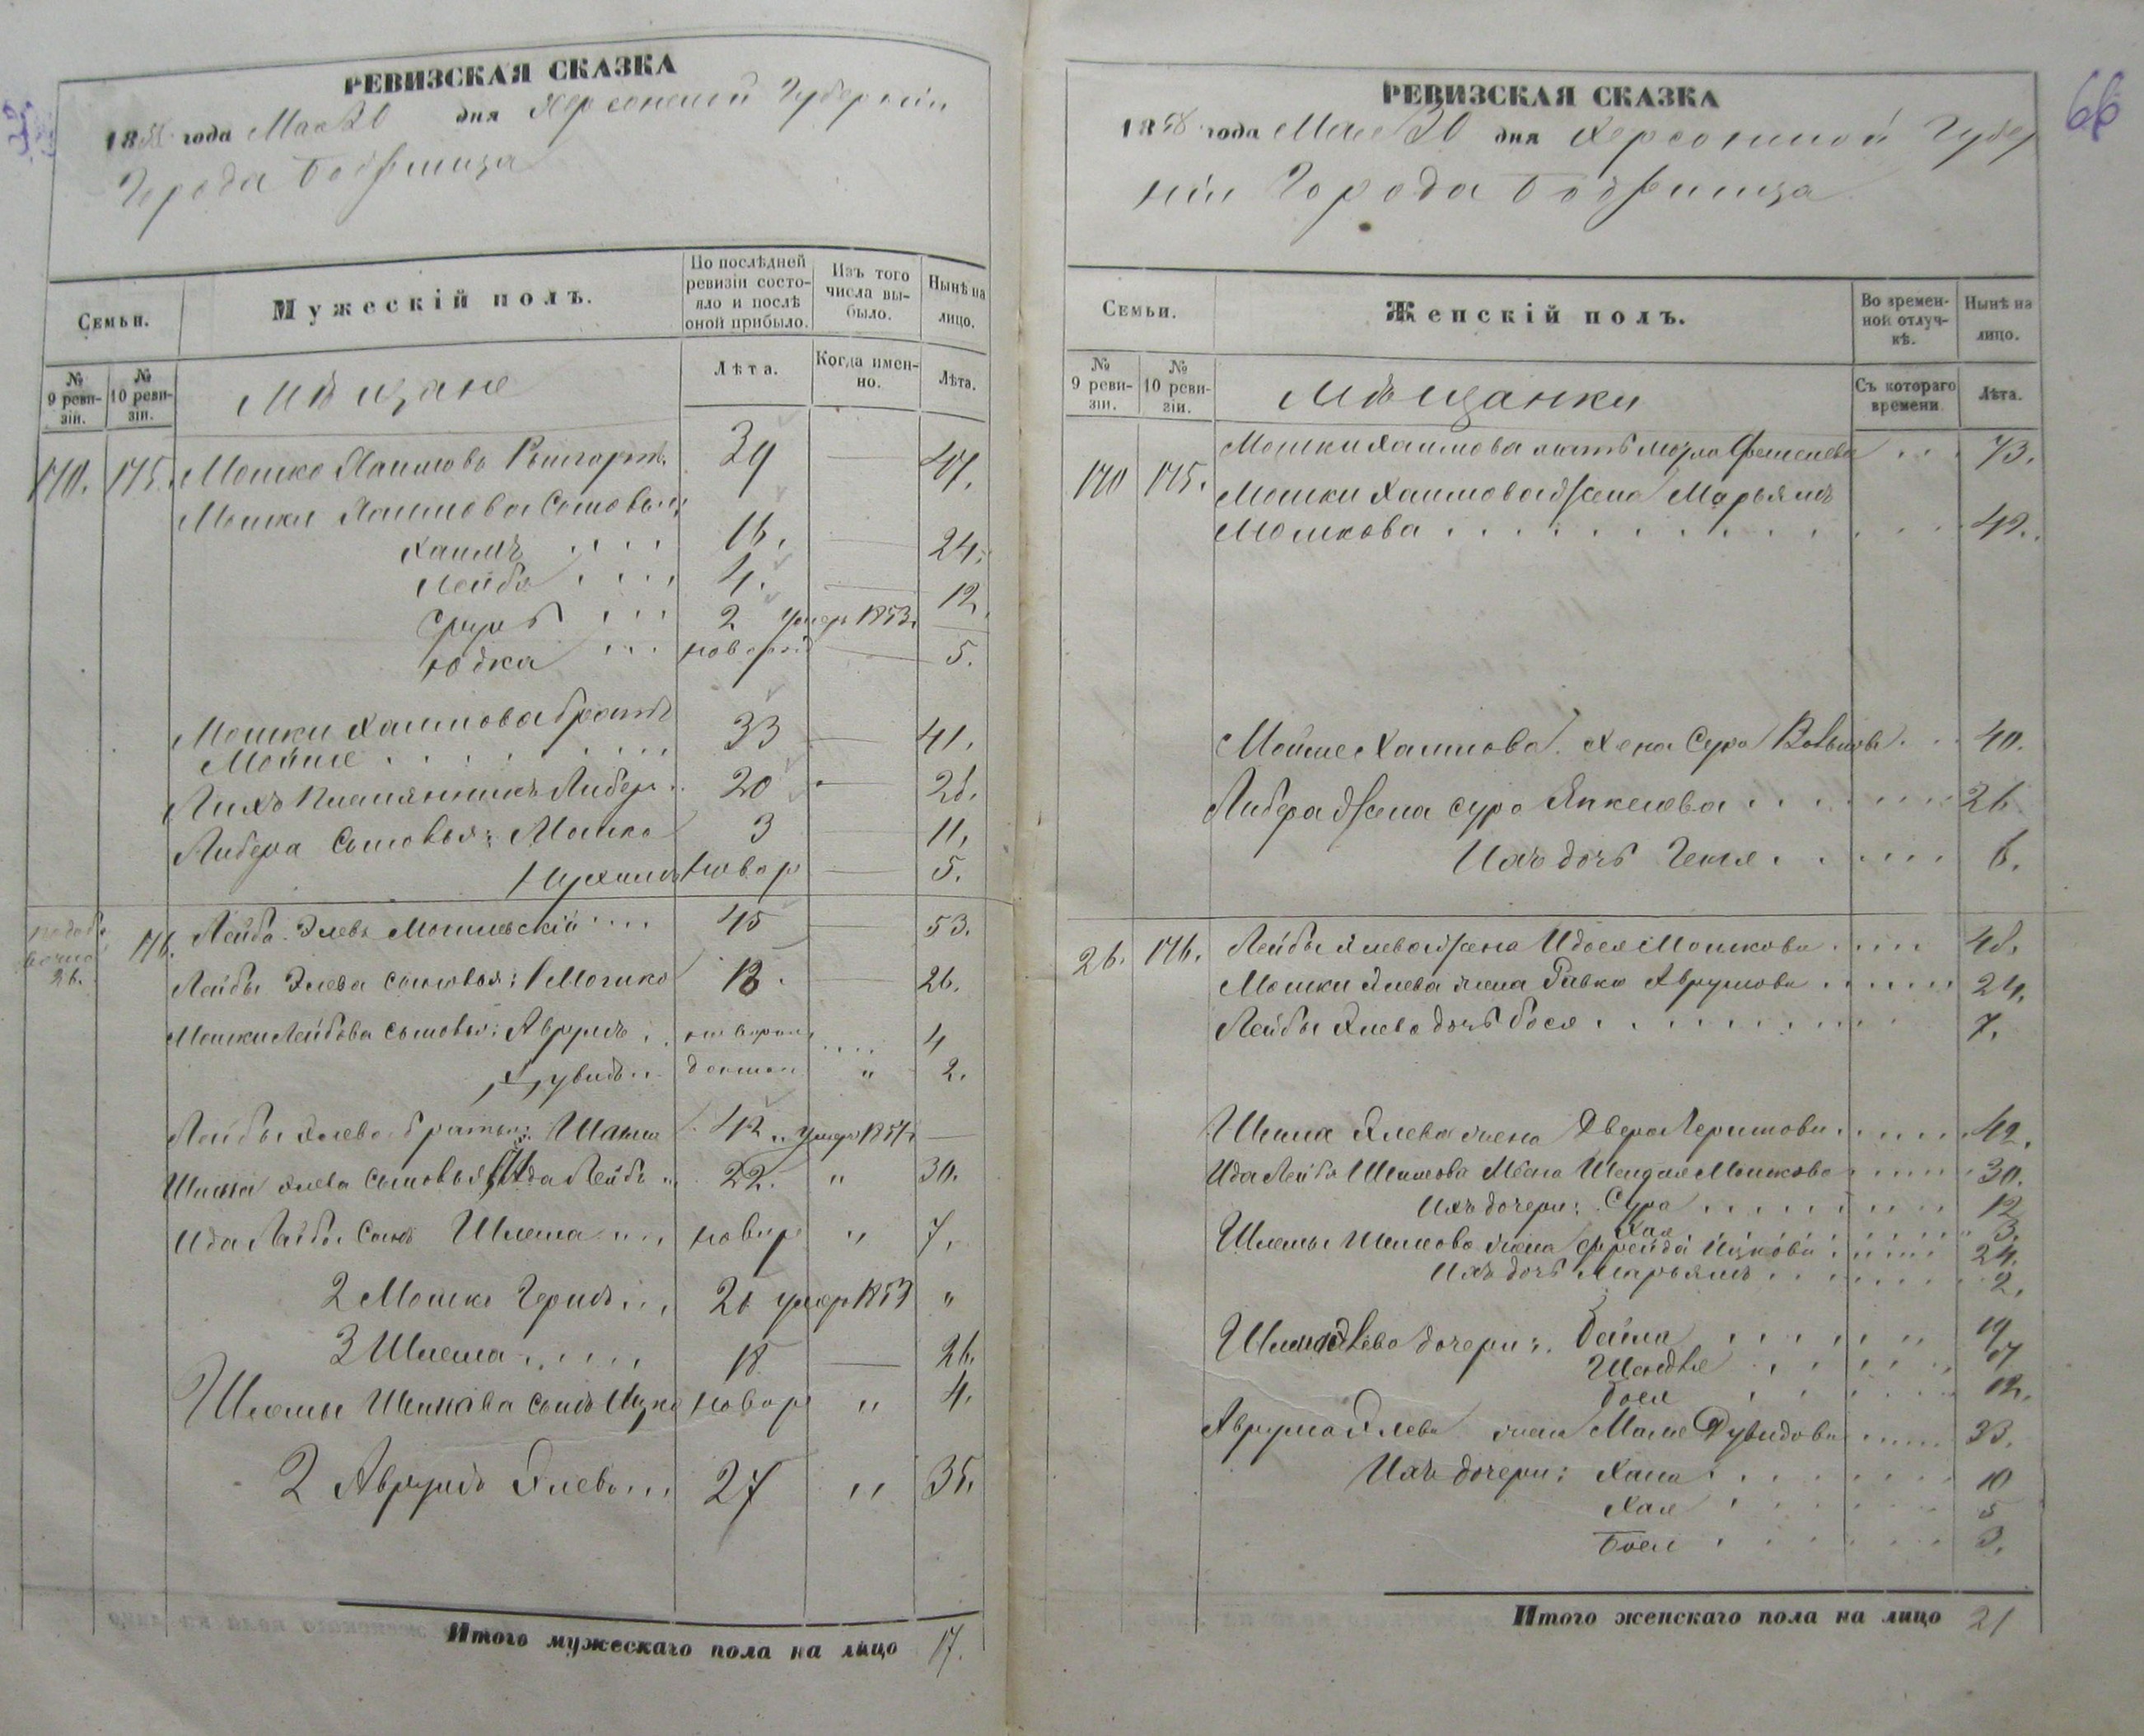 РЕВИЗСКАЯ СКАЗКА
1858 года Мая 30 дня Херсонской Губерніи
Города Бобринца
Семьи.
Мужескій полъ.
По послѣдней ревизіи состояло и послѣ оной прибыло.
Изъ того числа выбыло.
Нынѣ на лицо.
№ 9 ревизіи.
№ 10 ревизіи.
Мѣщане
Лѣта.
Когда именно.
Лѣта.
170. 175. Мошко Хаимовъ 39 47.
Мошки Хаимова Сыновья:
Хаимъ 16. 24.
Лейба 4. 12.
Сруль 2 умер 1853.
Юдка новорож 5.
Мошки Хаимова братъ
Мойше 33 41.
Ихъ племянникъ Либеръ 20 28.
Либера Сыновья: Мошко 3 11.
Нухимъ новор 5.
26.
176. Лейба Элевъ Могилевскій 45 53.
Лейбы Элева сыновья: 1 Мошко 18. 26.
Мошки Лейбова сыновья: Аврумъ новорож 4
Дувидъ 2.
Лейбы Элева братья: 1. Шима 42 умеръ 185
Шима Элева сыновья: 1 Ида Лейбъ 22. " 30.
Ида Лейбы Сынъ Шлема новор " 7.
2 Мошко Гершъ 26 умер 1853 "
3 Шлема 18 26.
Шлемы Шимова сынъ Ицко новор " 4.
2 Аврумъ Элевъ 27 " 35.
Итого мужескаго пола на лицо 17.
66
РЕВИЗСКАЯ СКАЗКА
1858 года Мая 30 дня Херсонской Губер
ніи Города Бобринца
Семьи.
Женскій полъ.
Во временной отлучкѣ.
Нынѣ на лицо.
№ 9 ревизіи.
№ 10 ревизіи.
Мѣщанки
Съ котораго времени
Лѣта.
Мошки Хаимова мать 73.
170 175. Мошки Хаимова жена Марьямъ
Мошкова 42.
Мойше Хаимова жена Сура Волькова 40.
Либера жена Сура Янкелева 26
Ихъ дочь Геня 6.
26. 176. Лейбы Элева жена Идося Мошкова 48.
Мошки Элева жена Ривка Аврумова 24.
Лейбы Элева дочь Бося 7.
Шима Элева жена Двера Гершкова 42.
Ида Лейбы Шимова жена Шендля Мошкова 30.
Ихъ дочери: Сура 12
Хая 3.
Шлемы Шимова жена Фрейда Ицкова 24.
Ихъ дочь Марьямъ 2.
Шима Элева дочери: Бейла 19
Шендля 17
Бося 12.
Аврума Элева жена Маля Дувидова 33.
Ихъ дочери: Хана 10
Хая 5
Бося 3.
Итого женскаго пола на лицо 21